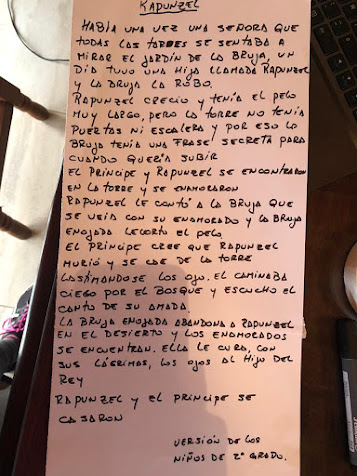 RAPUNZEL
HABÍA UNA VEZ UNA SEÑORA QUE
TODAS LAS TARDES SE SENTABA A
MIRAR EL JARDÍN DE LA BRUJA, UN
DÍA TUVO UNA HIJA LLAMADA RAPUNZEL
Y LA BRUJA LA ROBO.
RAPUNZEL CRECIO Y TENÍA EL PELO
MUY LARGO, PERO LA TORRE NO TENÍA
PUERTAS NI ESCALERA Y POR ESO LA
BRUJA TENÍA UNA FRASE SECRETA PARA
CUANDO QUERÍA SUBIR
EL PRINCIPE Y RAPUNZEL SE ENCONTRARON
EN LA TORRE Y SE ENAMORARON
RAPUNZEL LE CONTÓ A LA BRUJA QUE
SE VEIA CON SU ENAMORADO Y LA BRUJA
ENOJADA LE CORTO EL PELO.
EL PRINCIPE CREE QUE RAPUNZEL
MURIÓ Y SE CAE DE LA TORRE
LASTIMANDOSE LOS OJO. EL CAMINABA
CIEGO POR EL BOSQUE Y ESCUCHO EL
CANTO DE SU AMADA.
LA BRUJA ENOJADA ABANDONA A RAPUNZEL
EN EL DESIERTO Y LOS ENAMORADOS
SE ENCUENTRAN. ELLA LE CURA, CON
SUS LÁGRIMAS, LOS OJOS AL HIJO DEL
REY
RAPUNZEL Y EL PRINCIPE SE
CASARON
VERSIÓN DE LOS
NIÑOS DE 2° GRADO.